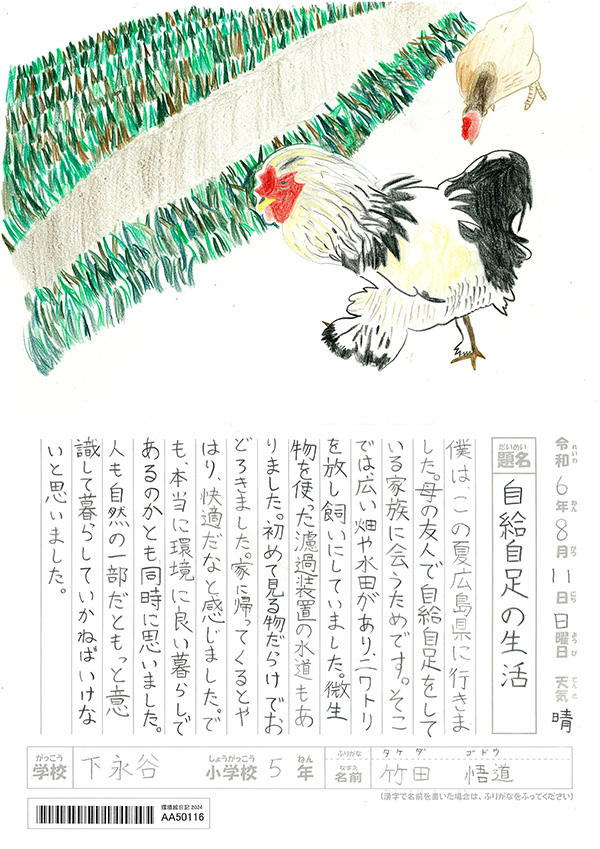 令和6年8月11日日曜日 天気 晴
れいわ ねん がつ にち ようび てんき
題名 自給自足の生活
だいめい
僕は、この夏広島県に行きま
した。母の友人で自給自足をして
いる家族に会うためです。そこ
では、広い畑や水田があり、ニワトリ
を放し飼いにしていました。微生
物を使った濾過装置の水道もあ
りました。初めて見る物だらけでお
どろきました。家に帰ってくるとや
はり、快適だなと感じました。で
も、本当に環境に良い暮らしで
あるのかとも同時に思いました。
人も自然の一部だともっと意
識して暮らしていかねばいけな
いと思いました。
がっこう しょうがっこう ねん ふりがな タケダ ゴドウ
学校 下永谷 小学校 5年 なまえ 名前 竹田 悟道
(漢字で名前を書いた場合は、ふりがなをふってください)
環境絵日記2024
AA50116